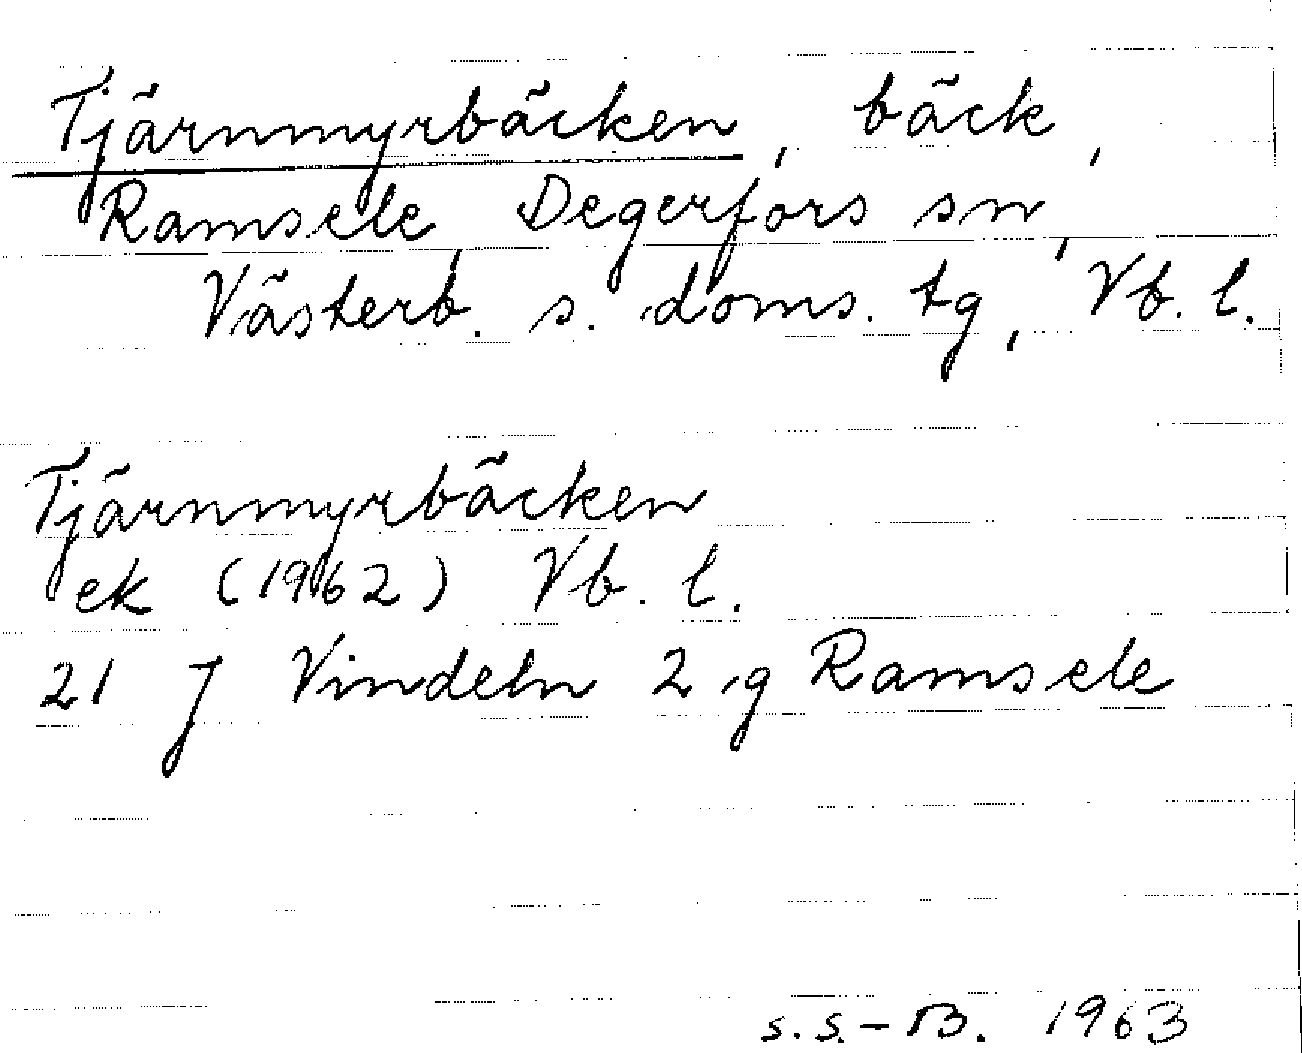 Tjärnmyrbäcken, bäck,
Ramsele, Degerfors sn,
Västerb. s. doms. tg, Vb. l.
Tjärnmyrbäcken
ek (1962) Vb. l.
21 J Vindeln 2 g Ramsele
s.s.-B. 1963